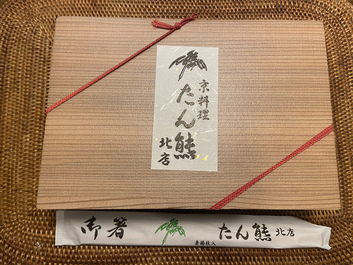 京料理
たん熊
北店
御箸
たん熊 北店